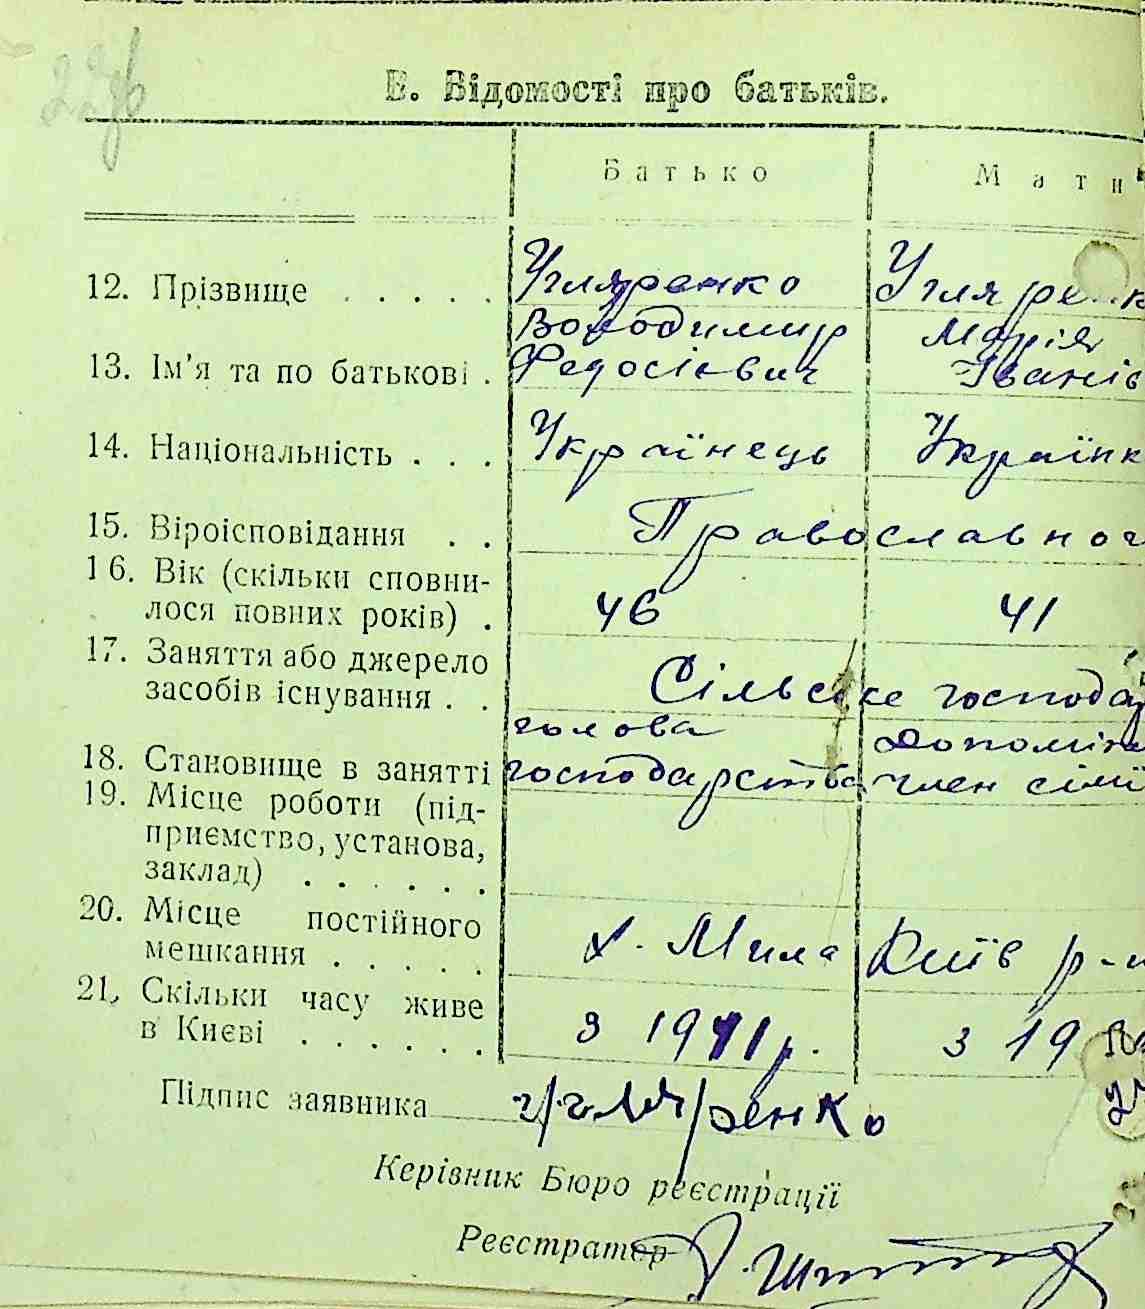 В. Відомості про батьків.
Батько Мати
12. Прізвище . . . . . Угляренко Угляренк
Володимир Марія
13. Ім'я та по батькові . Федосієвич Іванів
14. Національність . . . Українець Українк
15. Віроісповідання . . Православног
16. Вік (скільки сповни-
лося повних років) . 46 41
17. Заняття або джерело
засобів існування . . Сільське господар
голова Допоміж
18. Становище в занятті господарства член сімї
19. Місце роботи (під-
приємство, установа,
заклад) . . . . . .
20. Місце постійного
мешкання . . . . . х. Мила Київ р-н
21. Скільки часу живе
в Києві . . . . . . з 1941 р. з 19
Підпис заявника Угляренко
Керівник Бюро реєстрації
Реєстратор